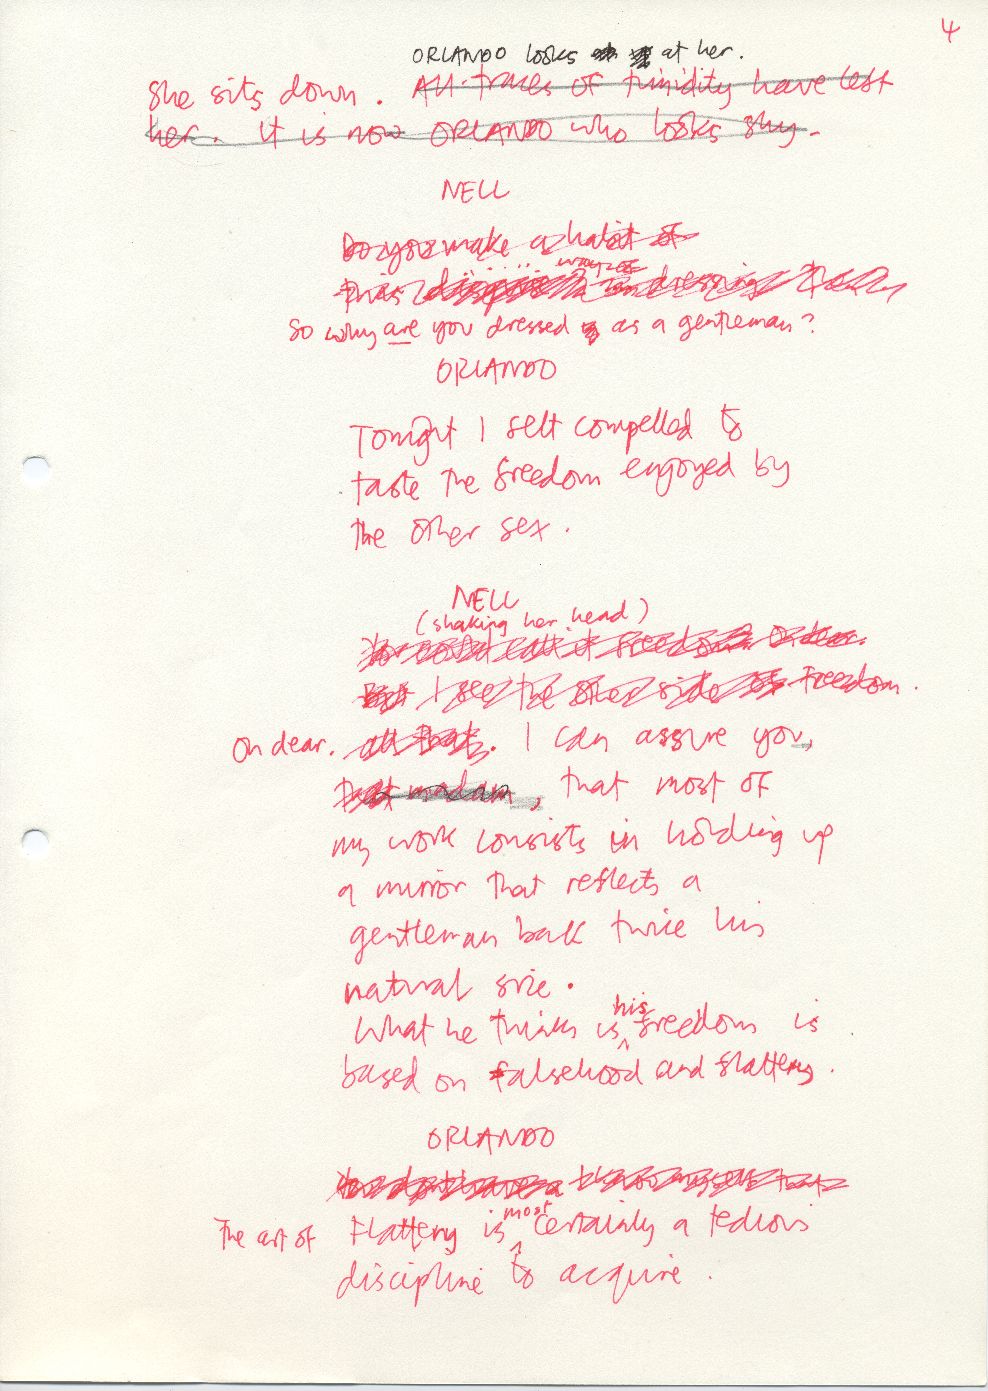 4
ORLANDO looks at her.
She sits down. All traces of timidity have left
her. It is now ORLANDO who looks shy.
NELL
Do you make a habit of
this way of dressing
So why are you dressed as a gentleman?
ORLANDO
Tonight I felt compelled to
taste the freedom enjoyed by
the other sex.
NELL
(shaking her head)
You could call it freedom
But I see the other side of freedom.
Oh dear. all that. I can assure you,
that madam, that most of
my work consists in holding up
a mirror that reflects a
gentleman back twice his
natural size.
What he thinks is his freedom is
based on falsehood and flattery.
ORLANDO
The art of Flattery is most certainly a tedious
discipline to acquire.